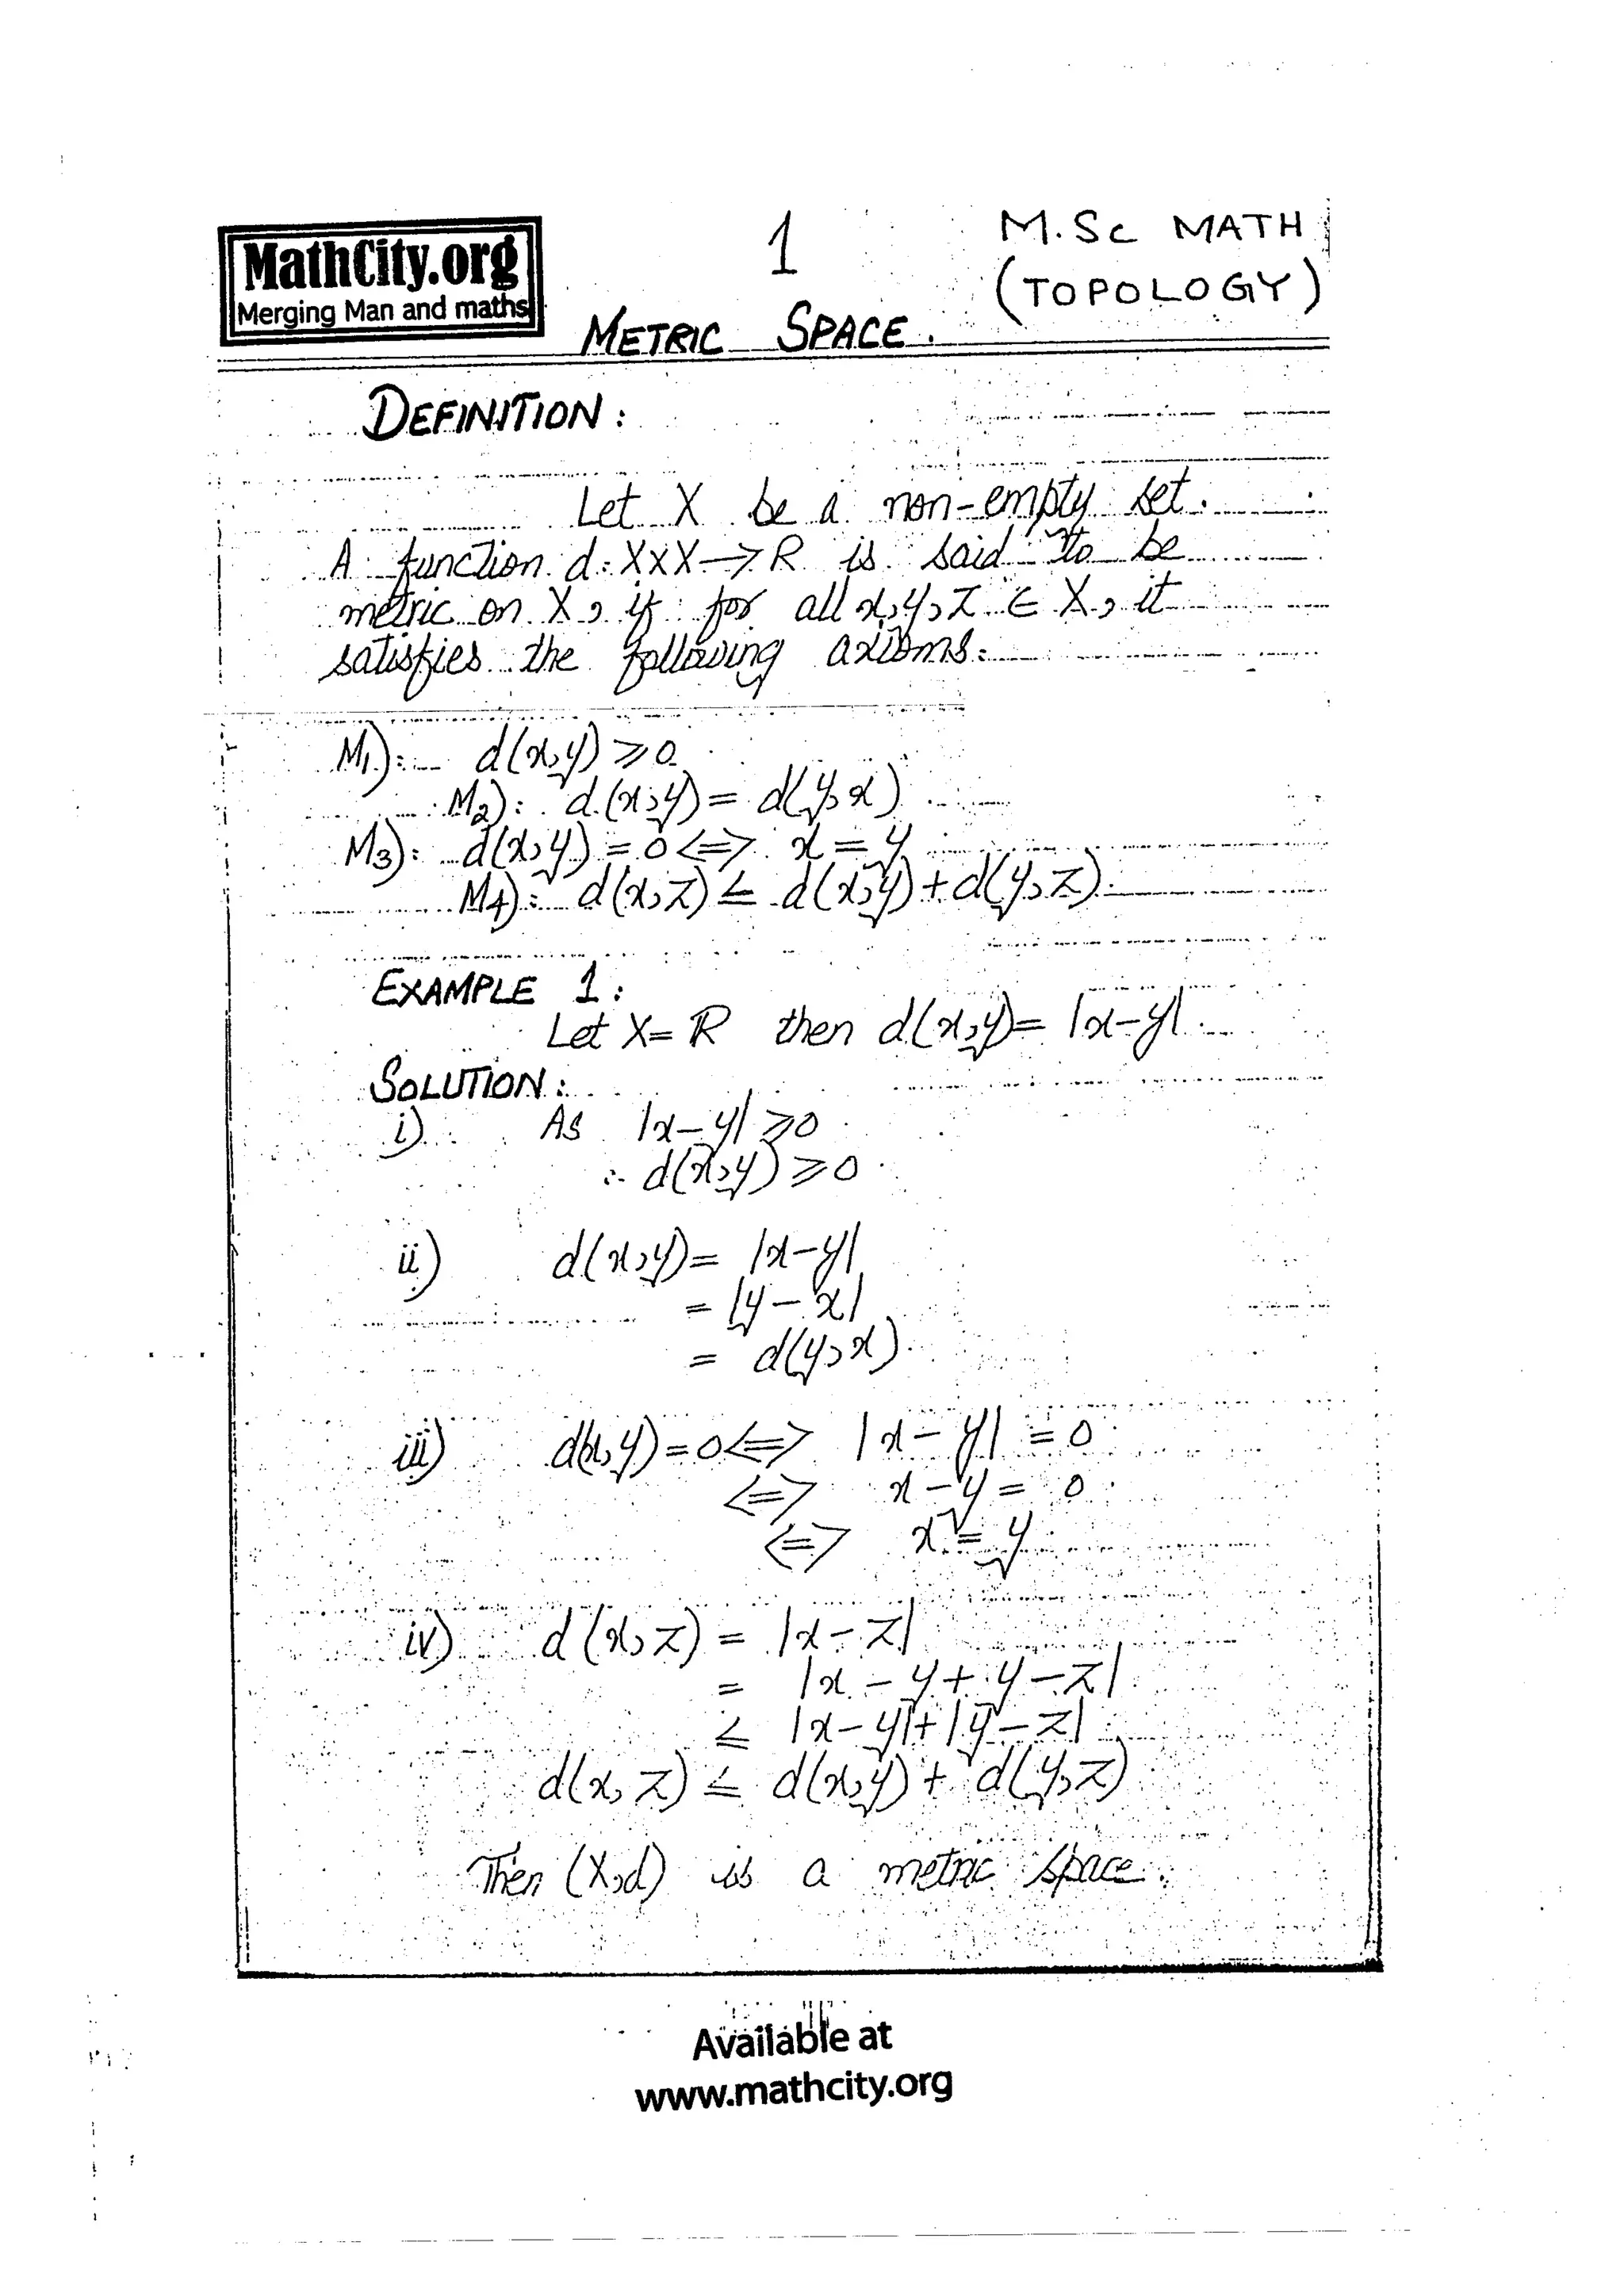 MathCity.org
Merging Man and maths
1
M.Sc MATH
(TOPOLOGY)
METRIC SPACE.
DEFINITION:
Let X be a non-empty set.
A function d: X×X→R is said to be
metric on X, if for all x,y,z ∈ X, it
satisfies the following axioms:
M1): d(x,y) ⩾ 0
M2): d(x,y) = d(y,x)
M3): d(x,y) = 0 <=> x = y
M4): d(x,z) ≤ d(x,y) + d(y,z).
EXAMPLE 1:
Let X = ℝ then d(x,y) = |x-y|
SOLUTION:
i) As |x-y| ⩾ 0
∴ d(x,y) ⩾ 0
ii) d(x,y) = |x-y|
= |y-x|
= d(y,x)
iii) d(x,y) = 0 <=> |x-y| = 0
<=> x-y = 0
<=> x = y
iv) d(x,z) = |x-z|
= |x-y+y-z|
≤ |x-y|+|y-z|
d(x,z) ≤ d(x,y) + d(y,z)
Then (X,d) is a metric space.
Available at
www.mathcity.org